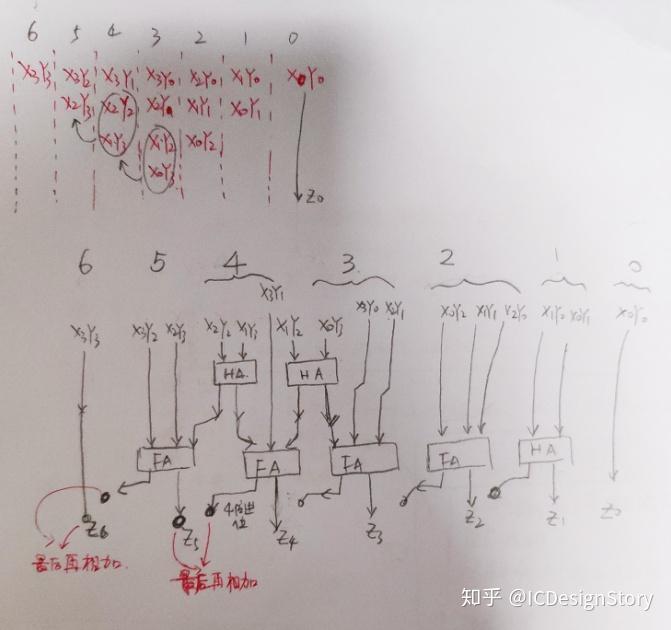 6 5 4 3 2 1 0
X3Y3 X3Y2 X3Y1 X3Y0 X2Y0 X1Y0 X0Y0
X2Y3 X2Y2 X2Y1 X1Y1 X0Y1
X1Y3 X1Y2 X0Y2
X0Y3
Z0
6 5 4 3 2 1 0
X3Y1
X3Y3 X3Y2 X2Y3 X2Y2 X1Y3 X1Y2 X0Y3 X3Y0 X2Y1 X0Y2 X1Y1 X2Y0 X1Y0 X0Y1 X0Y0
HA HA
FA FA FA FA HA
Z6 Z5 4的进位 Z4 Z3 Z2 Z1 Z0
最后再相加. 最后再相加
知乎 @ICDesignStory